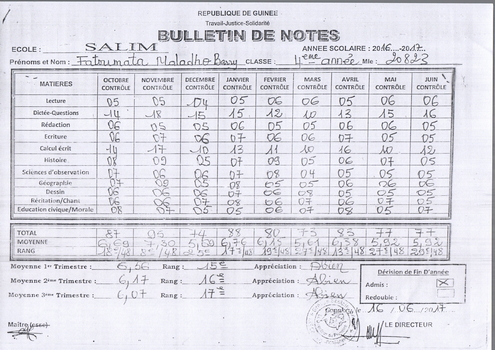 REPUBLIQUE DE GUINEE
Travail-Justice-Solidarité
BULLETIN DE NOTES
ECOLE : SALIM ANNEE SCOLAIRE : 2016 -2017
Prénoms et Nom : Fatoumata Maladho Barry CLASSE : 4ème année Mle : 20823
MATIERES OCTOBRE CONTRÔLE NOVEMBRE CONTRÔLE DECEMBRE CONTRÔLE JANVIER CONTRÔLE FEVRIER CONTRÔLE MARS CONTRÔLE AVRIL CONTRÔLE MAI CONTRÔLE JUIN CONTRÔLE
Lecture 05 05 04 05 06 06 05 06 06
Dictée-Questions 14 18 15 15 12 10 13 15 16
Rédaction 06 05 05 06 05 05 05 05 05
Ecriture 06 07 06 07 06 06 07 05 05
Calcul écrit 14 17 10 13 11 10 16 10 12
Histoire 08 09 05 07 09 05 06 07 05
Sciences d'observation 07 06 06 07 08 04 05 05 05
Géographie 07 09 05 08 05 05 06 06 06
Dessin 06 06 06
Récitation/Chans 06 06 06
Education civique/Morale 08 07 05 08 06 07 08 05 07
TOTAL 87 95 74 88 80 73 83 77 77
MOYENNE 6,69 7,30 6,76 6,15 5,61 6,38 5,92 5,92
RANG
Moyenne 1er Trimestre : 6,56 Rang : 15è Appréciation : A.bien
Moyenne 2ème Trimestre : 6,17 Rang : 16 Appréciation : A.bien
Moyenne 3ème Trimestre : 6,07 Rang : 17 Appréciation : A.bien
Décision de Fin D'année
Admis :
Redoublie :
16 /06 /2017
Maître (esse)
LE DIRECTEUR